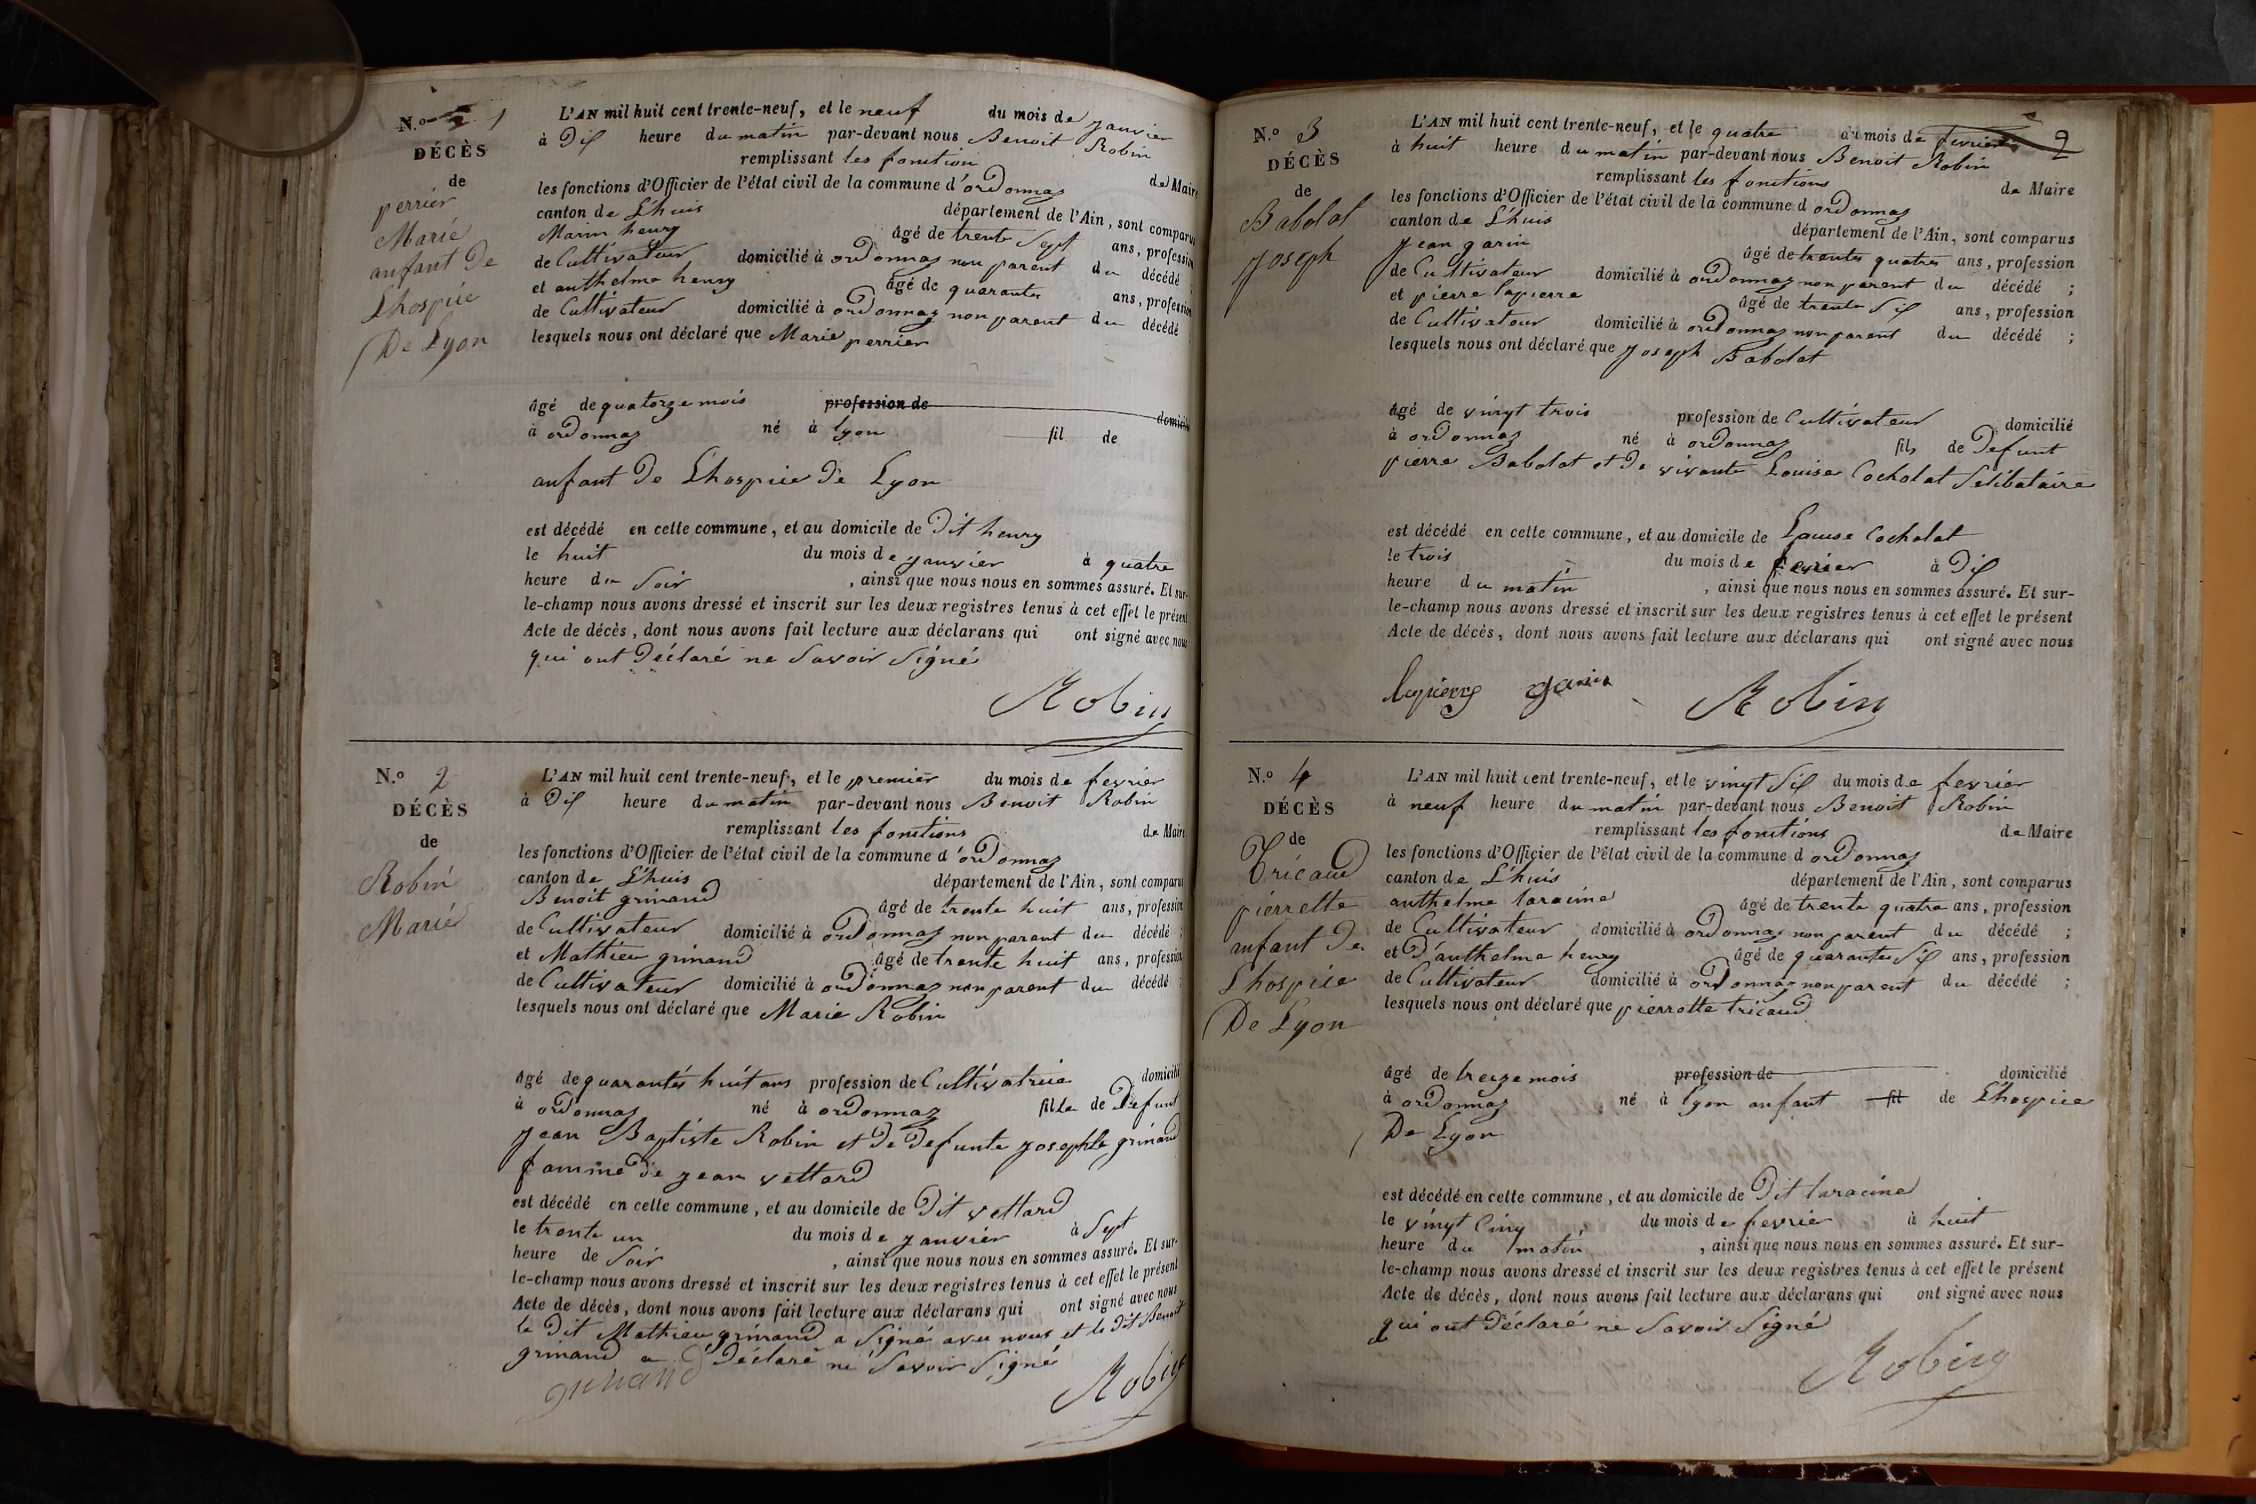 N.º 1
DÉCÈS
de
perrier
Marie
anfant De
Lhospice
De Lyon
L'AN mil huit cent trente-neuf, et le neuf du mois de janvier
à Dix heure du matin par-devant nous Benoit Robin
remplissant les fonction de Maire
les fonctions d'Officier de l'état civil de la commune d'ordonnaz
canton de L'huis département de l'Ain, sont comparus
Marin henry âgé de trente Sept ans, profession
de Cultivateur domicilié à ordonnaz non parent du décédé ;
et anthelme henry âgé de quarante ans, profession
de Cultivateur domicilié à ordonnaz non parent du décédé
lesquels nous ont déclaré que Marie perrier
âgé de quatorze mois profession de domicilié
à ordonnaz né à lyon fil de
anfant De L'hospice De Lyon
est décédé en cette commune, et au domicile de Dit henry
le huit du mois de janvier à quatre
heure du Soir, ainsi que nous nous en sommes assuré. Et sur-
le-champ nous avons dressé et inscrit sur les deux registres tenus à cet effet le présent
Acte de décès, dont nous avons fait lecture aux déclarans qui ont signé avec nous
qui ont Déclaré ne Savoir Signé
Robin
N.º 2
DÉCÈS
de
Robin
Marie
L'AN mil huit cent trente-neuf, et le premier du mois de fevrier
à Dix heure du matin par-devant nous Benoit Robin
remplissant les fonctions de Maire
les fonctions d'Officier de l'état civil de la commune d'ordonnaz
canton de L'huis département de l'Ain, sont comparus
Benoit grinand âgé de trente huit ans, profession
de Cultivateur domicilié à ordonnaz non parent du décédé ;
et Mathieu grinand âgé de trente huit ans, profession
de Cultivateur domicilié à ordonnaz non parent du décédé ;
lesquels nous ont déclaré que Marie Robin
âgé de quarante huit ans profession de Cultivatrice domicilié
à ordonnaz né à ordonnaz fille de Defunt
jean Baptiste Robin et De Defunte josephte grinand
famme De jean vettard
est décédé en cette commune, et au domicile de Dit vettard
le trente un du mois de janvier à Sept
heure de Soir, ainsi que nous nous en sommes assuré. Et sur-
le-champ nous avons dressé et inscrit sur les deux registres tenus à cet effet le présent
Acte de décès, dont nous avons fait lecture aux déclarans qui ont signé avec nous
le Dit Mathieu grinand a Signé avec nous et le Dit Benoit
grinand a Déclaré ne Savoir Signé
grinand Robin
2
N.º 3
DÉCÈS
de
Babolat
joseph
L'AN mil huit cent trente-neuf, et le quatre du mois de fevrier
à huit heure du matin par-devant nous Benoit Robin
remplissant les fonctions de Maire
les fonctions d'Officier de l'état civil de la commune d ordonnaz
canton de L'huis département de l'Ain, sont comparus
jean garin âgé de trente quatre ans, profession
de Cultivateur domicilié à ordonnaz non parent du décédé ;
et pierre lapierre âgé de trente Six ans, profession
de Cultivateur domicilié à ordonnaz non parent du décédé ;
lesquels nous ont déclaré que joseph Babolat
âgé de vingt trois profession de Cultivateur domicilié
à ordonnaz né à ordonnaz fils de Defunt
pierre Babolat et De vivante Louise Cocholat Selibataire
est décédé en cette commune, et au domicile de Louise Cocholat
le trois du mois de fevrier à Dix
heure du matin, ainsi que nous nous en sommes assuré. Et sur-
le-champ nous avons dressé et inscrit sur les deux registres tenus à cet effet le présent
Acte de décès, dont nous avons fait lecture aux déclarans qui ont signé avec nous
lapierre garin Robin
N.º 4
DÉCÈS
de
Tricaud
pierrette
anfant De
Lhospice
De Lyon
L'AN mil huit cent trente-neuf, et le vingt Six du mois de fevrier
à neuf heure du matin par-devant nous Benoit Robin
remplissant les fonctions de Maire
les fonctions d'Officier de l'état civil de la commune d ordonnaz
canton de L'huis département de l'Ain, sont comparus
anthelme laracine âgé de trente quatre ans, profession
de Cultivateur domicilié à ordonnaz non parent du décédé ;
et D'anthelme henry âgé de quarante Six ans, profession
de Cultivateur domicilié à ordonnaz non parent du décédé ;
lesquels nous ont déclaré que pierrette tricaud
âgé de treize mois profession de domicilié
à ordonnaz né à lyon anfant fil de L'hospice
De Lyon
est décédé en cette commune, et au domicile de Dit laracine
le vingt Cinq du mois de fevrier à huit
heure du matin, ainsi que nous nous en sommes assuré. Et sur-
le-champ nous avons dressé et inscrit sur les deux registres tenus à cet effet le présent
Acte de décès, dont nous avons fait lecture aux déclarans qui ont signé avec nous
qui ont Déclaré ne Savoir Signé
Robin